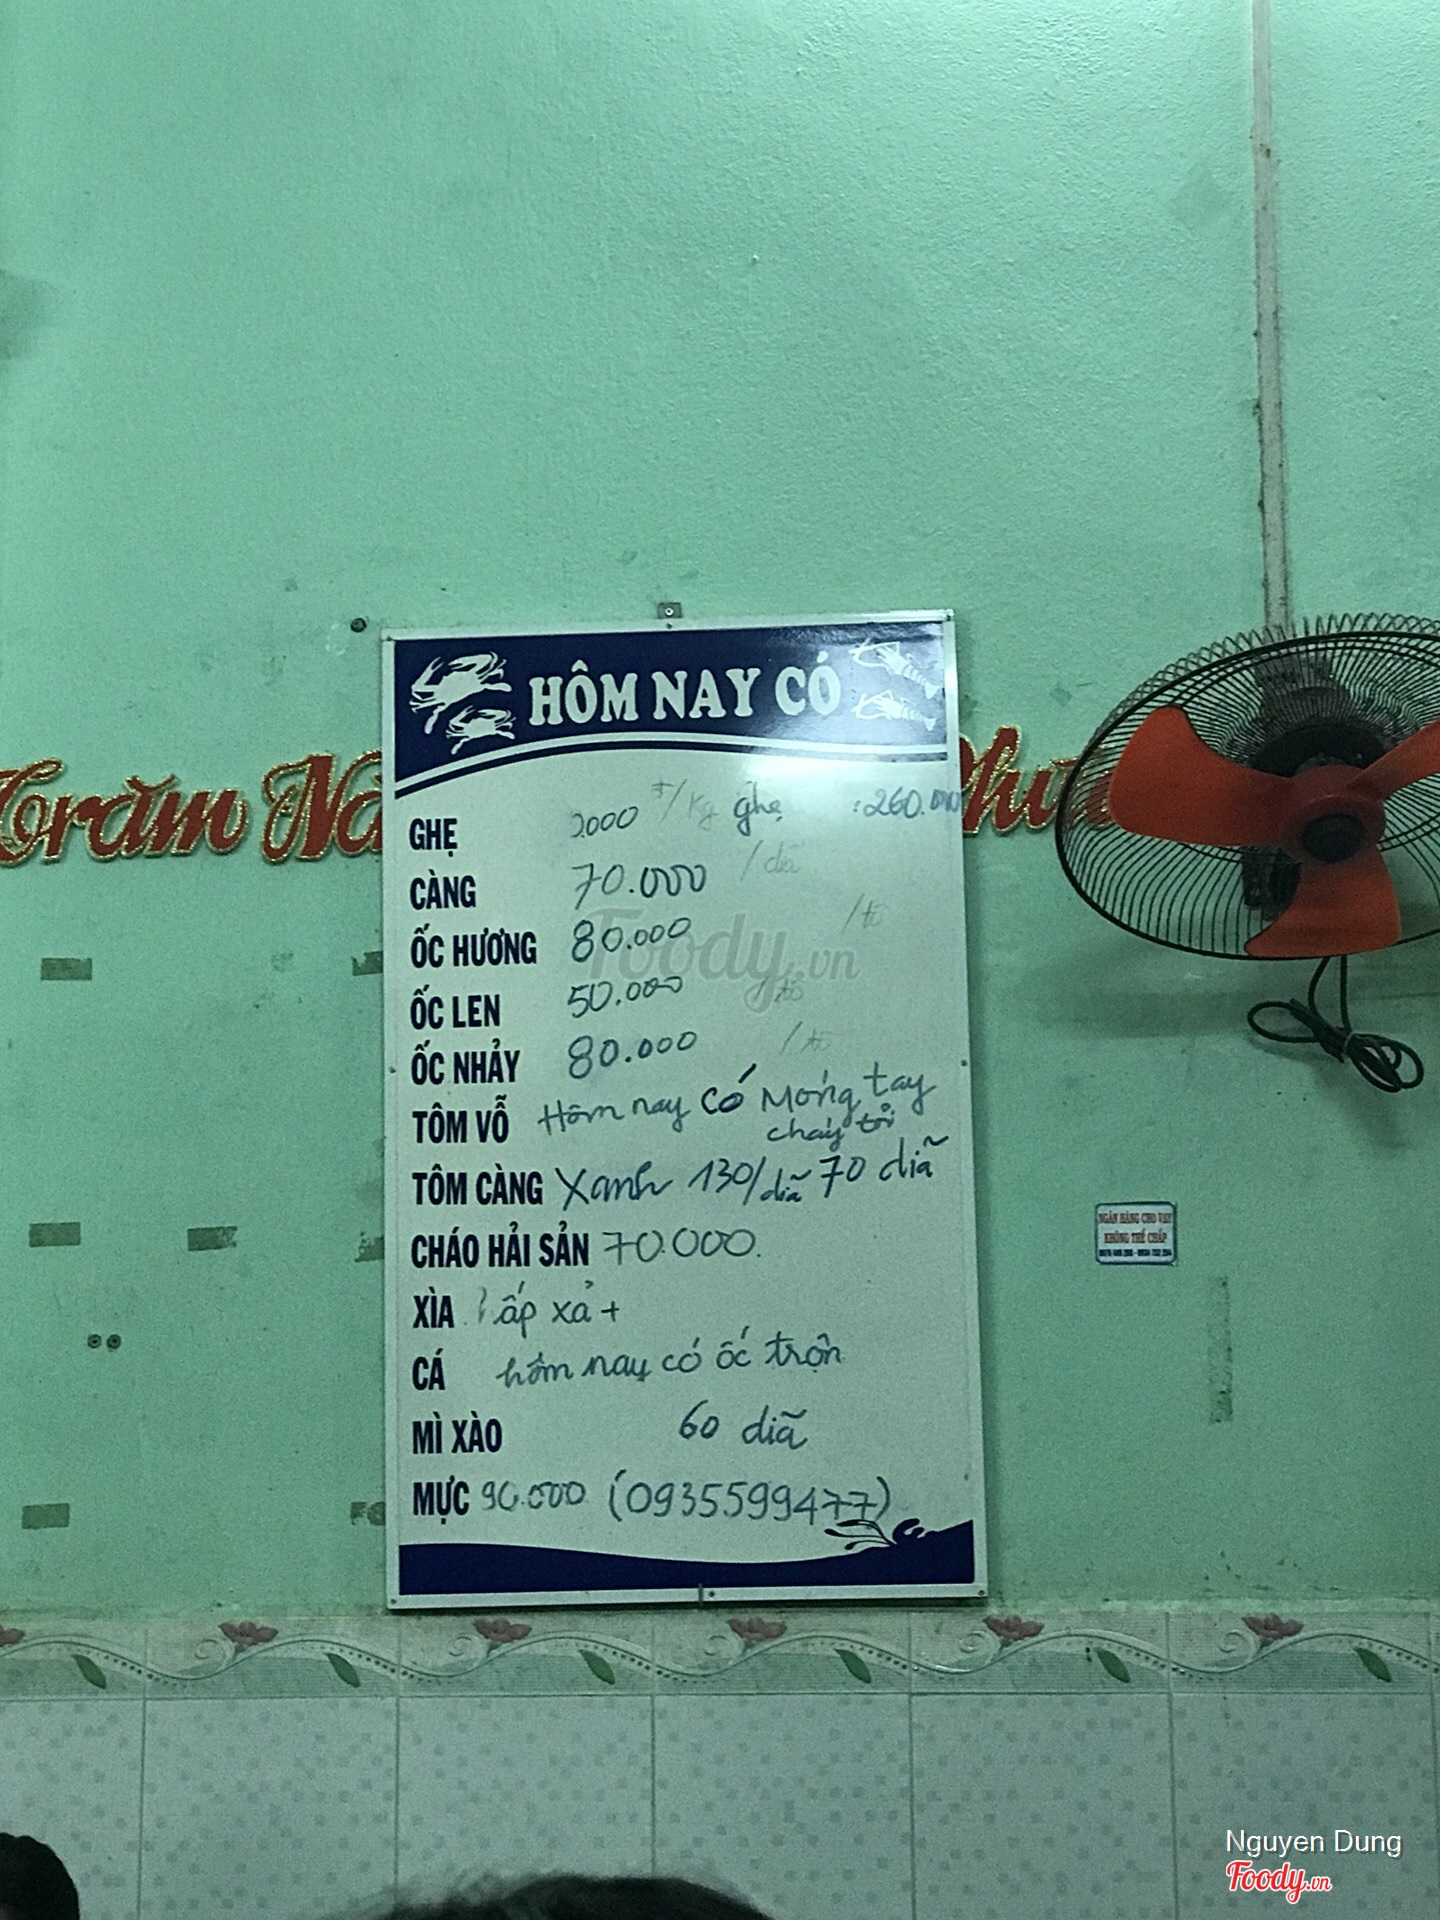 HÔM NAY CÓ
Trăm Nă
GHẸ 000 đ/kg ghẹ : 260.000
CÀNG 70.000 /dĩa
ỐC HƯƠNG 80.000 /tô
ỐC LEN 50.000 /tô
ỐC NHẢY 80.000 /tô
TÔM VỖ Hôm nay có Móng tay
cháy tỏi
TÔM CÀNG Xanh 130/dĩa 70 dĩa
CHÁO HẢI SẢN 70.000
XÌA hấp xả +
CÁ hôm nay có ốc trộn
MÌ XÀO 60 dĩa
MỰC 90.000 (0935599477)
NGÂN HÀNG CHO VAY
KHÔNG THẾ CHẤP
Foody.vn
Nguyen Dung
Foody.vn